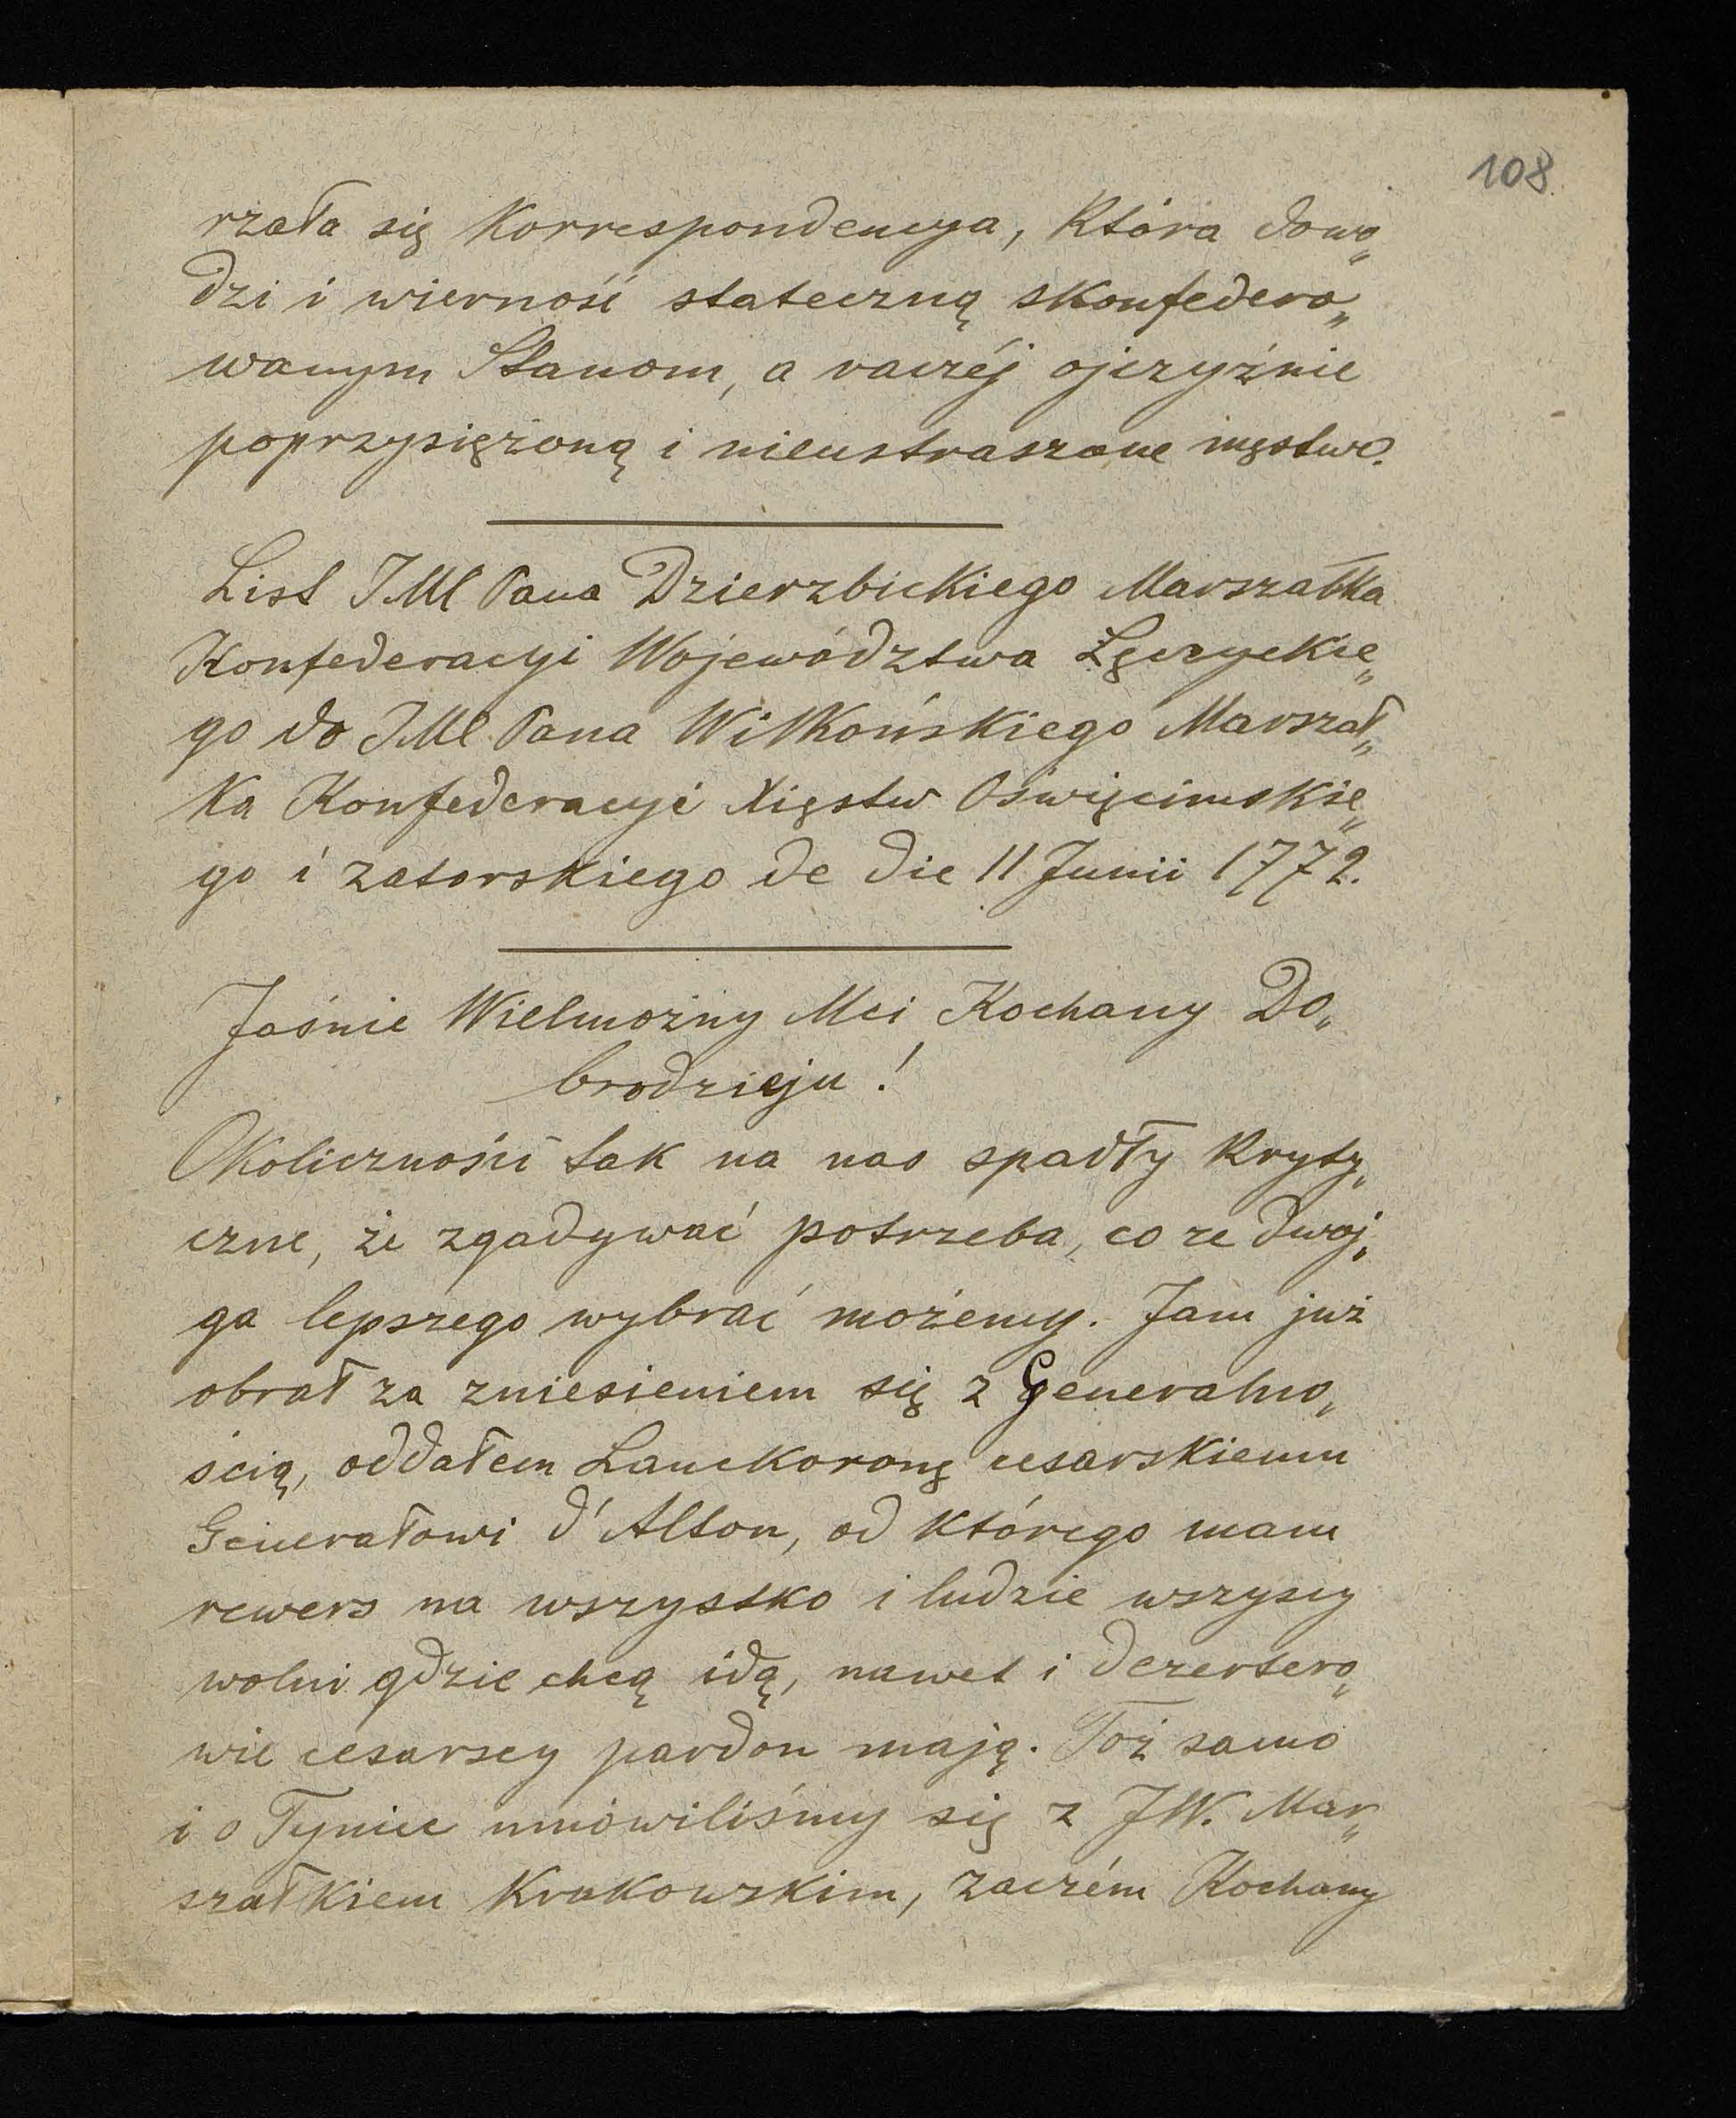 108
rzała się Korrespondencya, Która dowo„
dzi i wierność stateczną skonfedero„
wanym Stanom, a raczéj ojczyźnie
poprzysiężoną i nieustraszone męstwo.
List JMC Pana Dzierzbickiego Marszałka
Konfederacyi Województwa Łęczyckie„
go do JMC Pana Wilkońskiego Marszał„
ka Konfederacyi Xięstw Oświęcimskie„
go i zatorskiego de die 11 Junii 1772.
Jaśnie Wielmożny Mci Kochany Do„
brodzieju!
Okoliczności tak na nas spadły kryty„
czne, że zgadywać potrzeba, co ze dwoj„
ga lepszego wybrać możemy. Jam już
obrał za zniesieniem się z Generalno„
ścią, oddałem Lanckoronę cesarskiemu
Generałowi d'Alton, od którego mam
rewers na wszystko i ludzie wszyscy
wolni gdzie chcą idą, nawet i dezertero„
wie cesarscy pardon mają. Toż samo
i o Tyniec umówiliśmy się z JW. Mar„
szałkiem Krakowskim, zaczém Kochany